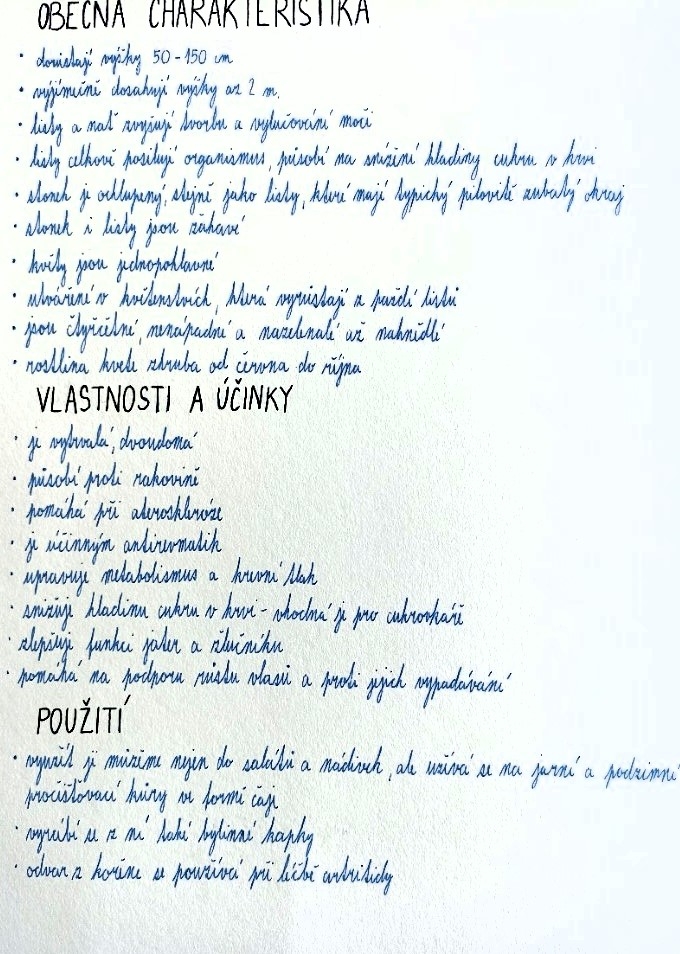 OBECNÁ CHARAKTERISTIKA
· dorůstají výšky 50-150 cm
· výjimečně dosahují výšky až 2 m.
· listy a nať zvyšují tvorbu a vylučování moči
· listy celkově posilují organismus, působí na snížení hladiny cukru v krvi
· stonek je ochlupený, stejně jako listy, které mají typický pilovitě zubatý okraj
· stonek i listy jsou žahavé
· květy jsou jednopohlavné
· utvářené v květenstvích, která vyrůstají z paždí listů
· jsou čtyřčetné, nenápadné a nazelenalé až nahnědlé
· rostlina kvete zhruba od června do října
VLASTNOSTI A ÚČINKY
· je vytrvalá, dvoudomá
· působí proti rakovině
· pomáhá při ateroskleróze
· je účinným antirevmatik
· upravuje metabolismus a krevní tlak
· snižuje hladinu cukru v krvi - vhodná je pro cukrovkáře
· zlepšuje funkci jater a žlučníku
· pomáhá na podporu růstu vlasů a proti jejich vypadávání
POUŽITÍ
· využít ji můžeme nejen do salátů a nádivek, ale užívá se na jarní a podzimní
pročišťovací kúry ve formě čaje
· vyrábí se z ní také bylinné kapky
· odvar z kořene se používá při léčbě artritidy